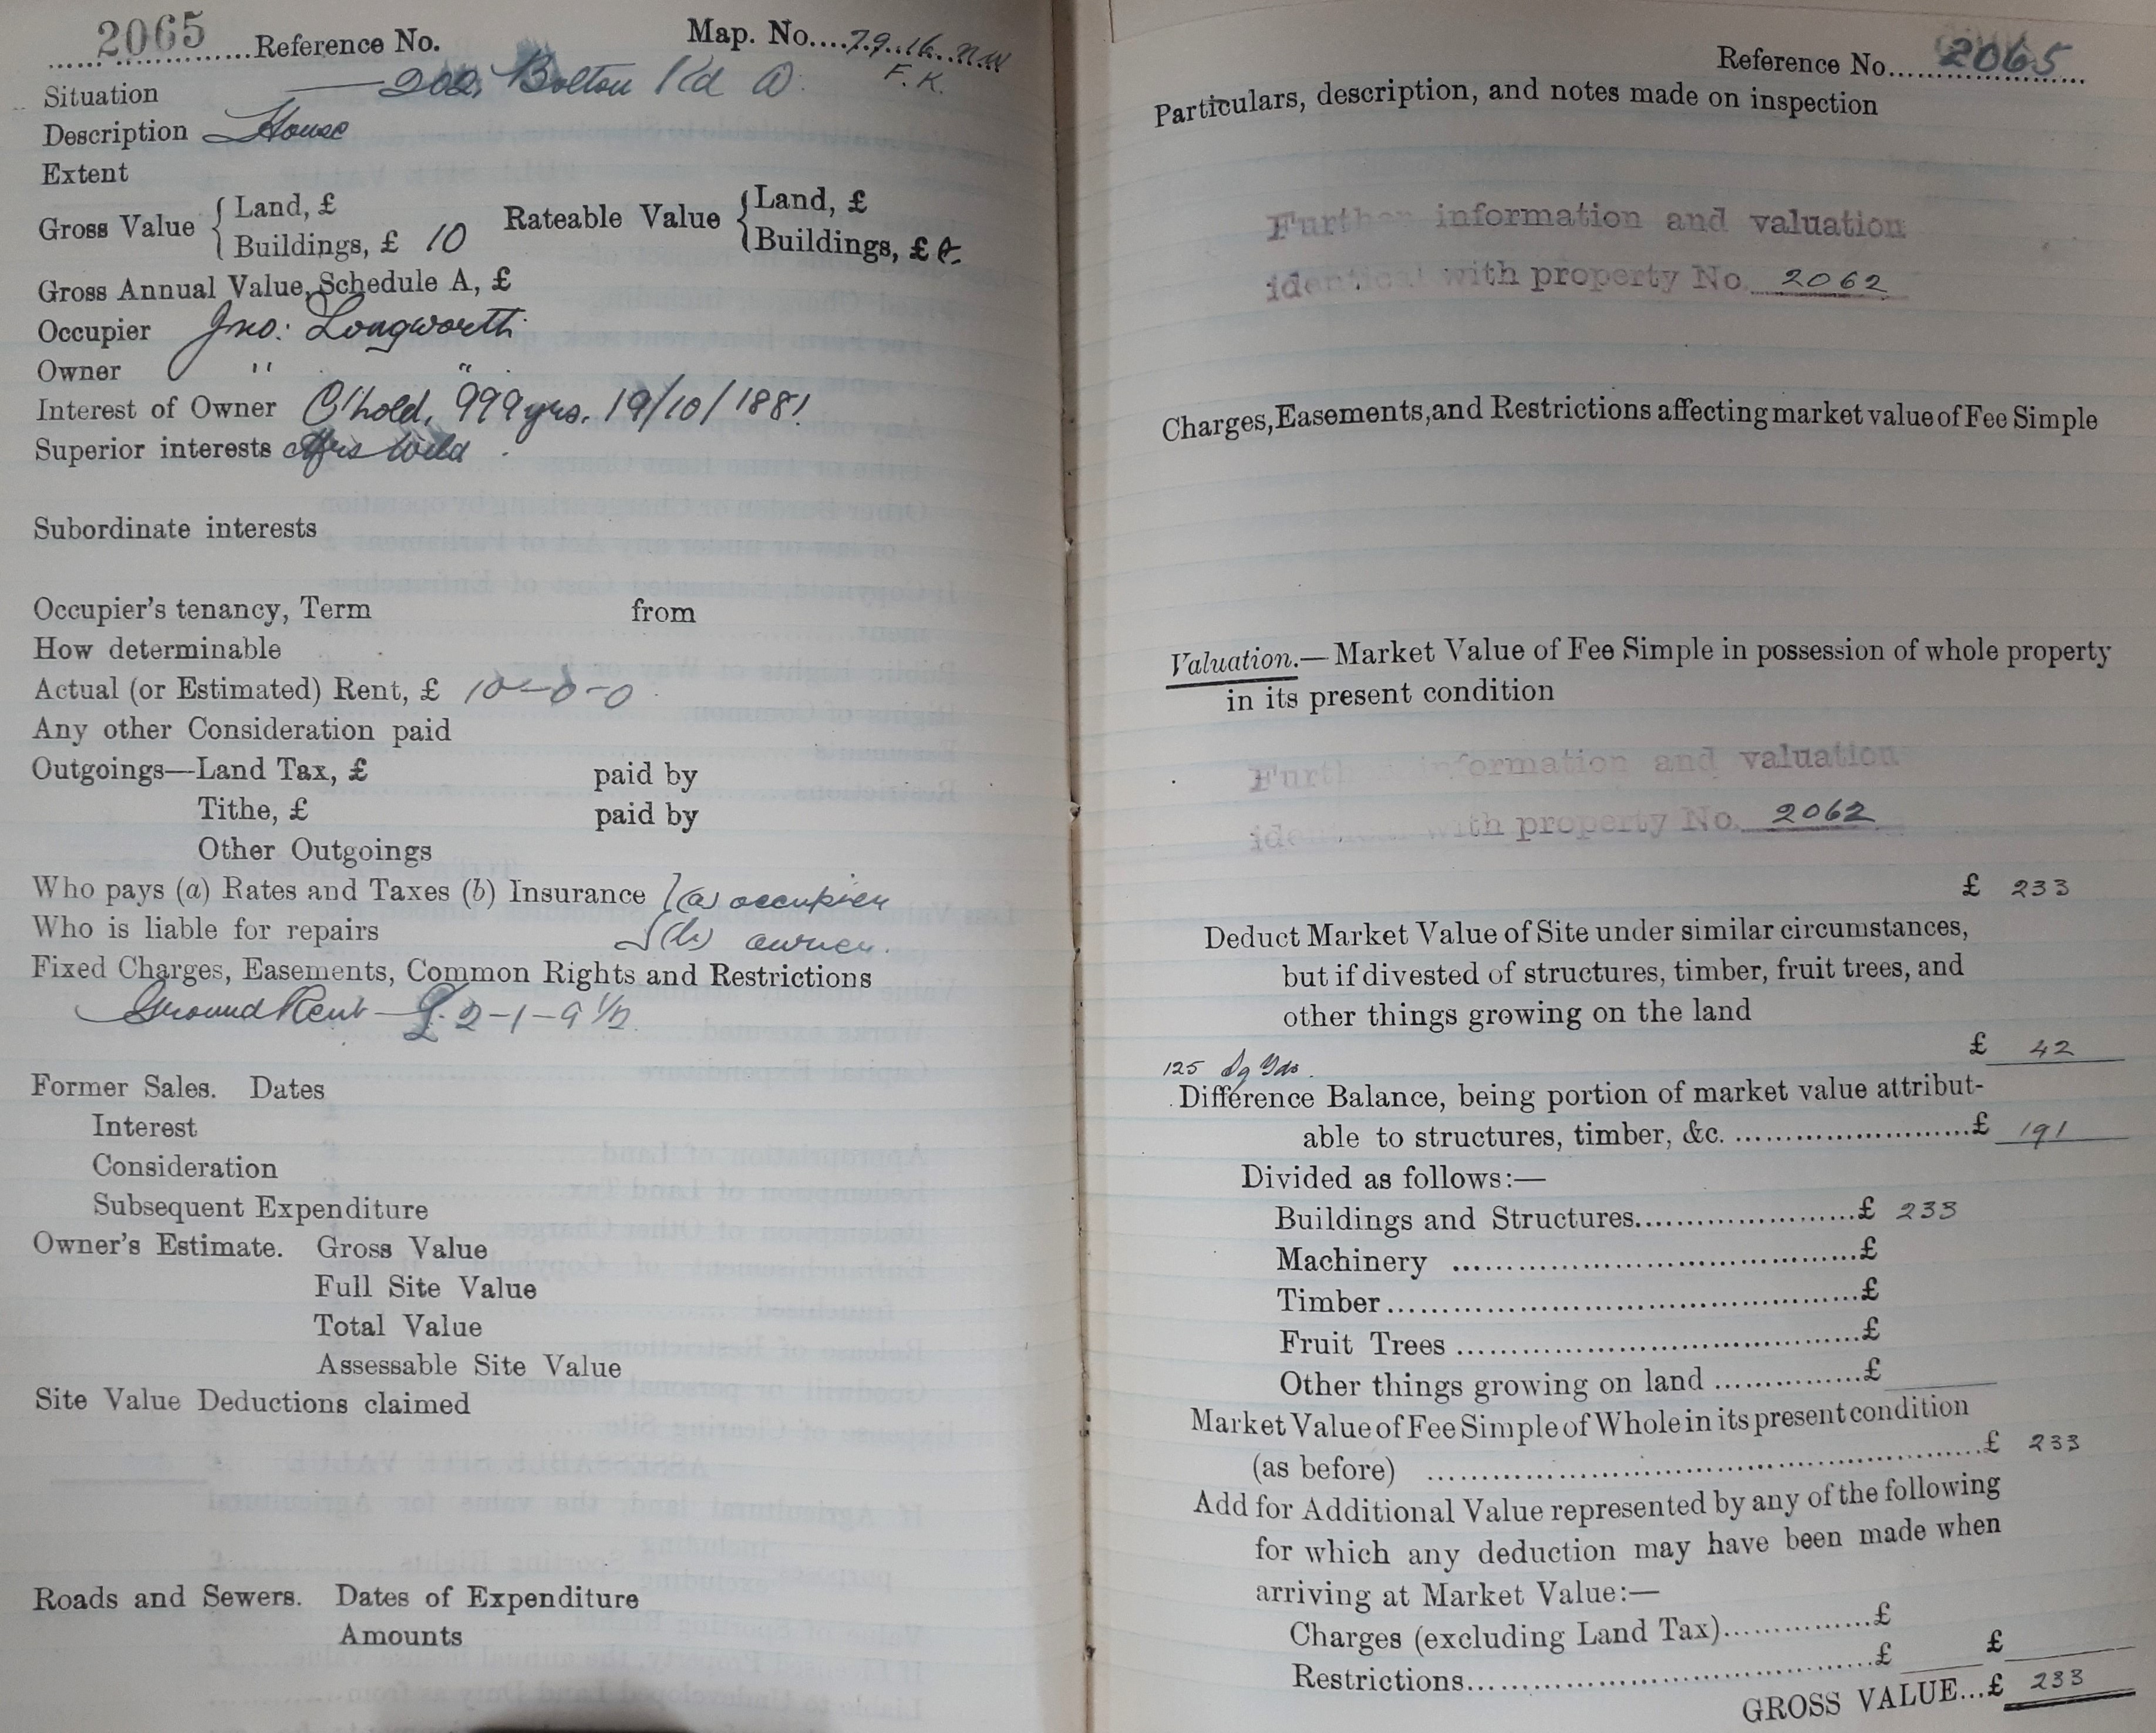 2065 Reference No. Map. No. 79.16. N.W
Situation 202, Bolton Rd F. K.
Description House
Extent
Gross Value { Land, £
Buildings, £ 10
Rateable Value { Land, £
Buildings, £
Gross Annual Value, Schedule A, £
Occupier Jno: Longworth
Owner " "
Interest of Owner C'hold, 999 yrs. 19/10/1881
Superior interests Mrs Wild
Subordinate interests
Occupier's tenancy, Term from
How determinable
Actual (or Estimated) Rent, £ 10-0-0
Any other Consideration paid
Outgoings—Land Tax, £ paid by
Tithe, £ paid by
Other Outgoings
Who pays (a) Rates and Taxes (b) Insurance } (a) occupier
Who is liable for repairs } (b) owner.
Fixed Charges, Easements, Common Rights and Restrictions
Ground Rent £2-1-9 1/2
Former Sales. Dates
Interest
Consideration
Subsequent Expenditure
Owner's Estimate. Gross Value
Full Site Value
Total Value
Assessable Site Value
Site Value Deductions claimed
Roads and Sewers. Dates of Expenditure
Amounts
Reference No. 2065
Particulars, description, and notes made on inspection
Further information and valuation
identical with property No. 2062
Charges, Easements, and Restrictions affecting market value of Fee Simple
Valuation.—Market Value of Fee Simple in possession of whole property
in its present condition
Further information and valuation
identical with property No. 2062
£ 233
Deduct Market Value of Site under similar circumstances,
but if divested of structures, timber, fruit trees, and
other things growing on the land
£ 42
125 Sq Yds.
Difference Balance, being portion of market value attribut-
able to structures, timber, &c. £ 191
Divided as follows:—
Buildings and Structures £ 233
Machinery £
Timber £
Fruit Trees £
Other things growing on land £
Market Value of Fee Simple of Whole in its present condition
(as before) £ 233
Add for Additional Value represented by any of the following
for which any deduction may have been made when
arriving at Market Value:—
Charges (excluding Land Tax) £
Restrictions £ £
GROSS VALUE...£ 233